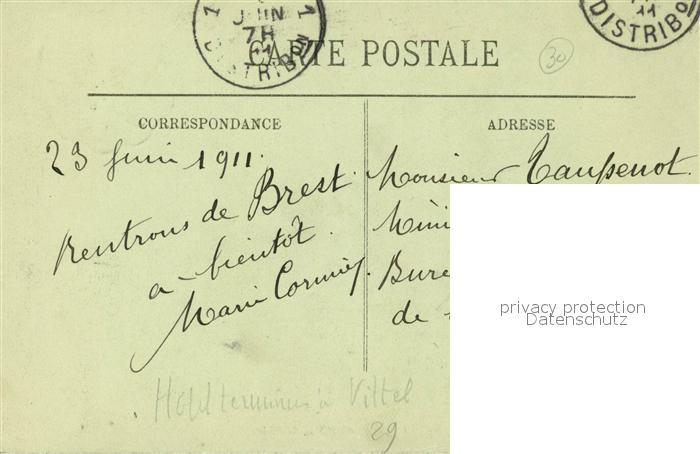 1 JUIN 1
7H
11
DISTRIBON
11
DISTRIBO
CARTE POSTALE
30
CORRESPONDANCE
ADRESSE
23 Juin 1911.
Rentrons de Brest.
à bientôt.
Marie
Monsieur Taupenot
Bure
de
privacy protection
Datenschutz
Hôtel terminus à Vittel
29